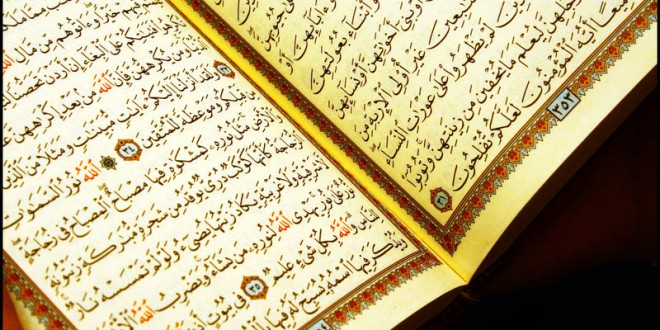 أَخَوَٰتِهِنَّ أَوْ نِسَآئِهِنَّ
ٱلتَّٰبِعِينَ غَيْرِ أُو۟لِى ٱلْإِرْبَةِ مِنَ
يَظْهَرُوا۟ عَلَىٰ عَوْرَٰتِ ٱلنِّسَآءِ
بِأَرْجُلِهِنَّ لِيُعْلَمَ مَا يُخْفِينَ مِن زِينَتِهِنَّ وَتُوبُوٓا۟
جَمِيعًا أَيُّهَ ٱلْمُؤْمِنُونَ لَعَلَّكُمْ تُفْلِحُونَ ٣١
٣٥٣
خَيْرًا وَءَاتُوهُم مِّن مَّالِ ٱللَّهِ
فَتَيَٰتِكُمْ عَلَى ٱلْبِغَآءِ إِنْ أَرَدْنَ تَحَصُّنًا
وَمَن يُكْرِههُّنَّ فَإِنَّ ٱللَّهَ مِنۢ بَعْدِ إِكْرَٰهِهِنَّ
٣٣ وَلَقَدْ أَنزَلْنَآ إِلَيْكُمْ ءَايَٰتٍ مُّبَيِّنَٰتٍ وَمَثَلًا مِّنَ ٱلَّذِينَ
قَبْلِكُمْ وَمَوْعِظَةً لِّلْمُتَّقِينَ ٣٤ ٱللَّهُ نُورُ ٱلسَّمَٰوَٰتِ
وَٱلْأَرْضِ مَثَلُ نُورِهِۦ كَمِشْكَوٰةٍ فِيهَا مِصْبَاحٌ ٱلْمِصْبَاحُ فِى زُجَاجَةٍ
ٱلزُّجَاجَةُ كَأَنَّهَا كَوْكَبٌ دُرِّىٌّ يُوقَدُ مِن شَجَرَةٍ مُّبَٰرَكَةٍ زَيْتُونَةٍ
لَّا شَرْقِيَّةٍ وَلَا غَرْبِيَّةٍ يَكَادُ زَيْتُهَا يُضِىٓءُ وَلَوْ لَمْ تَمْسَسْهُ نَارٌ
نُّورٌ عَلَىٰ نُورٍ يَهْدِى ٱللَّهُ لِنُورِهِۦ مَن يَشَآءُ وَيَضْرِبُ ٱللَّهُ ٱلْأَمْثَٰلَ
لِلنَّاسِ وَٱللَّهُ بِكُلِّ شَىْءٍ عَلِيمٌ ٣٥ فِى بُيُوتٍ أَذِنَ
وَيُذْكَرَ فِيهَا ٱسْمُهُۥ يُسَبِّحُ لَهُۥ فِيهَا